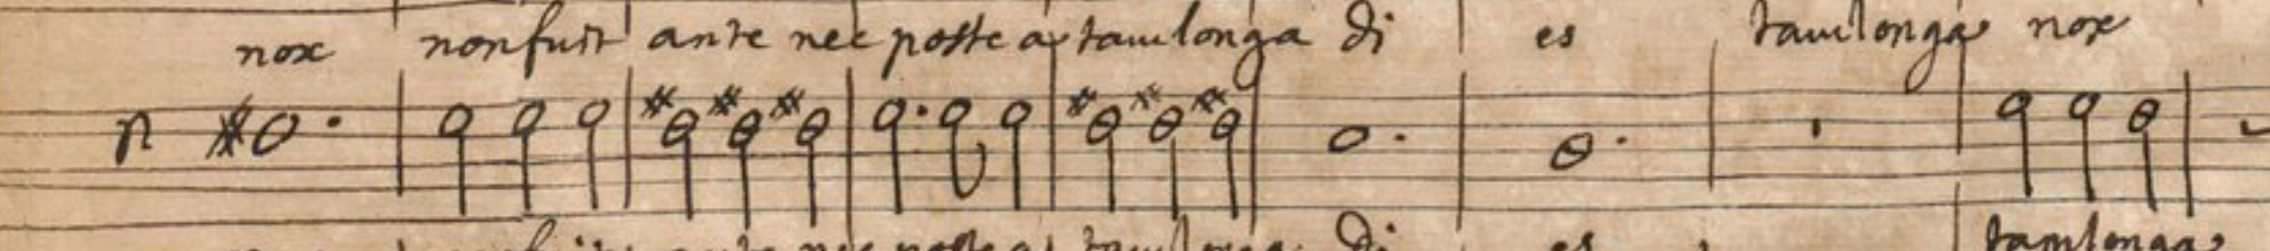 nox non fuit ante nec postea tam longa di es tam longa nox
di es tam longa